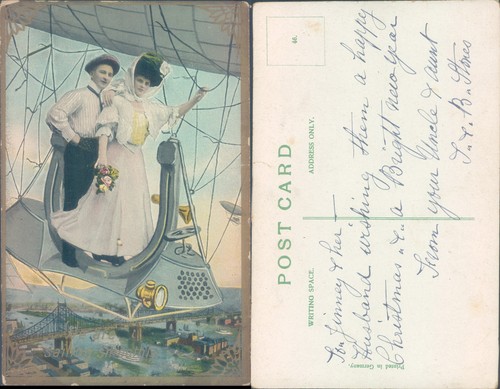 POST CARD
WRITING SPACE.
ADDRESS ONLY.
48.
Printed in Germany.
To Jinney & her
Husband wishing them a happy
Christmas & a Bright new year
From your Uncle & Aunt
Stones